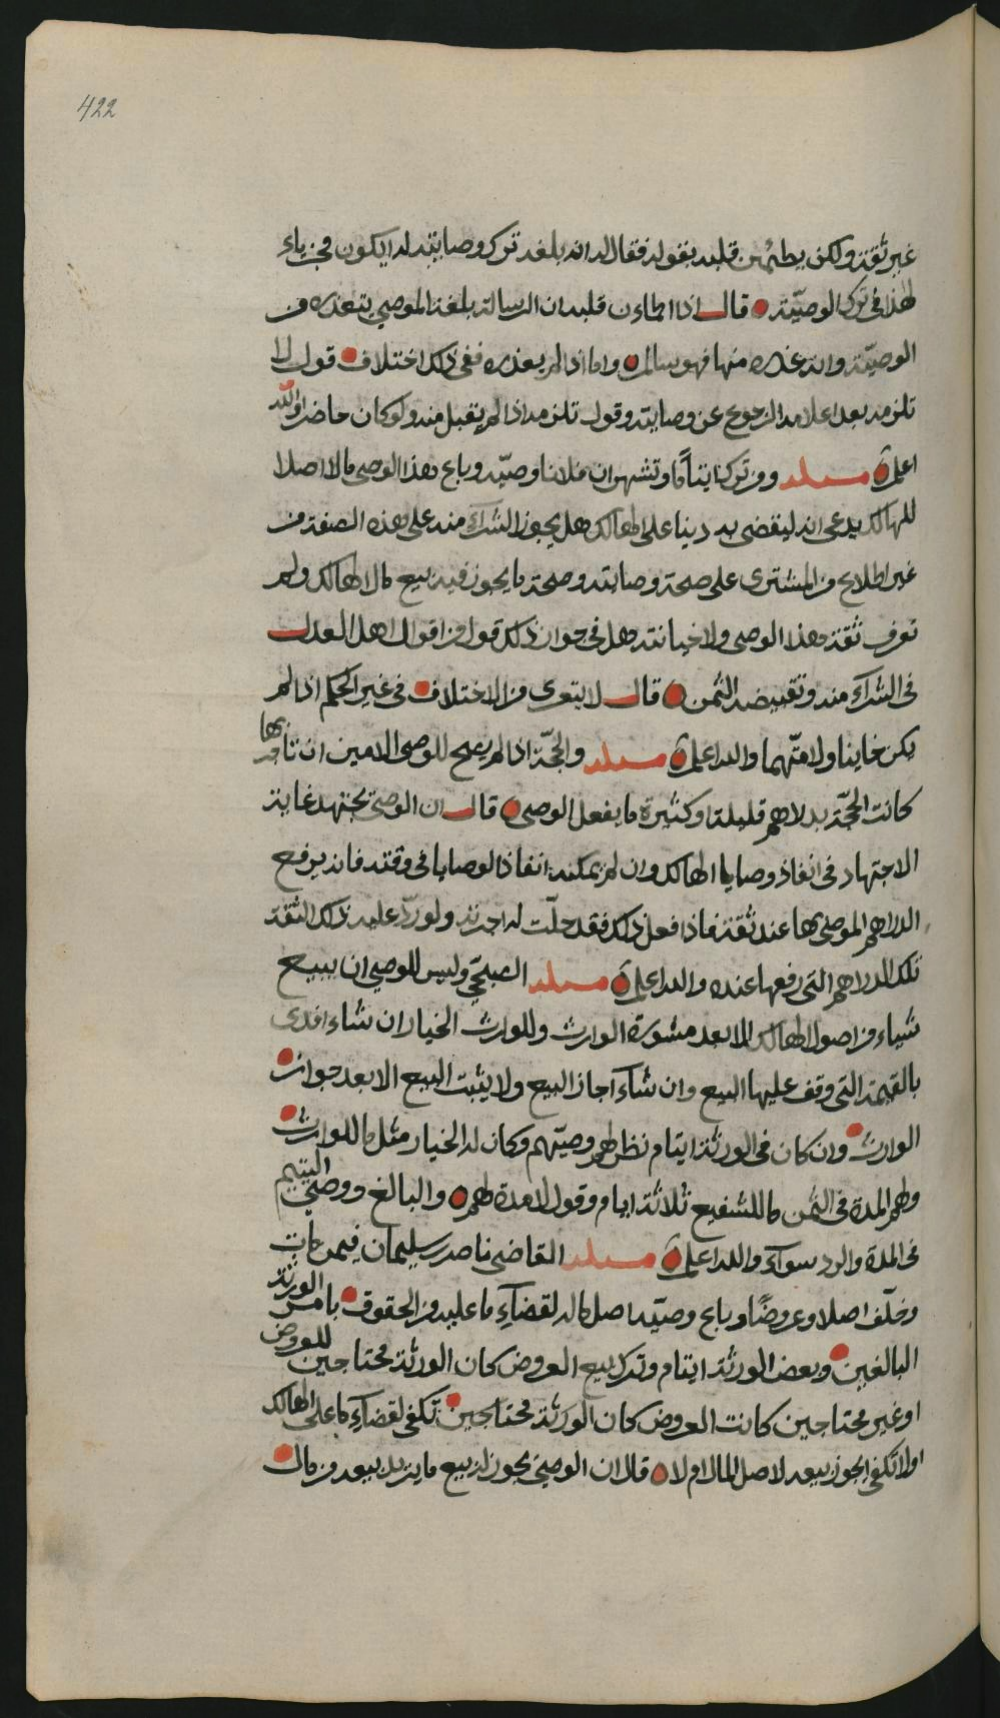 422
غير ثقة ولكن يطمئن قلبه بقوله فقال له انه بلغه ترك وصايته له ايكون مجزياء
لهذا في ترك الوصيّة قال اذا اطماءن قلبه ان الرسالة بلغة الموصي بتعذره من
الوصيّة وانه عذره منها فهو سالم واما اذا لم يعذره ففي ذلك اختلاف قول لا
تلزمه بعد اعلامه الرجوع عن وصايته وقول تلزمه اذا لم يقبل منه ولو كان حاضرا والله
اعلم مسئلة ومن ترك ايتاًما وتشهر ان فلانا وصيّه وباع هذا الوصي مالا اصلا
للهالك يدعي انه ليقضي به دينا على الهالك هل يجوز الشراء منه على هذه الصفة من
غير اطلاع من المشتري على صحة وصايته وصحة ما يجوز فيه بيع مال الهالك ولم
تعرف ثقة هذا الوصي ولا خيانته وهل في جواز ذلك قول من اقوال اهل العدل
في الشراء منه وتقبيضه الثمن قال لا يتعرى من الاختلاف في غير الحكم اذا لم
يكن خاينا ولا متّهما والله اعلم مسئلة والحجّة اذا لم يصح للوصي الامين ان تاجربها
كانت الحجّة بدلاهم قليلة او كثيرة ما يفعل الوصي قال ان الوصيّ يجتهد غاية
الاجتهاد في انفاذ وصايا الهالك وان لم يمكنه انفاذ الوصايا في وقته فانه يرفع
الدراهم الموصى بها عند ثقة فاذا فعل ذلك فقد حلّت له اجرته ولو ردّ عليه ذلك الثقة
تلك الدراهم التي رفعها عنده والله اعلم مسئلة الصبحيّ وليس للوصي ان يبيع
شياء من اصول الهالك الا بعد مشورة الوارث وللوارث الخيار ان شاء افدى
بالقيمة التي وقف عليها البيع وان شاء اجاز البيع ولا يثبت البيع الا بعد جوازه
الوارث وان كان في الورثة ايتام نظر لهم وصيّهم وكان له الخيار مثل ما للوارث
ولهم المدة في الثمن ما للشفيع ثلاثة ايام وقول لا مدة لهم والبالغ ووصي اليتيم
في المدة والرد سواء والله اعلم مسئلة القاضي ناصر بن سليمان فيمن مات
وخلّف اصلا وعروضًا وباع وصيّه اصل ماله لقضاء ما عليه من الحقوق بامر الورثة
البالغين وبعض الورثة ايتام وترك بيع العروض كان الورثة محتاجين للعروض
او غير محتاجين كانت العروض كان الورثة محتاجين تكفي لقضاء ما على الهالك
اولا تكفي ايجوز بيعه لاصل المال ام لا قال ان الوصيّ يجوز له بيع ما يريد بيعه من مال